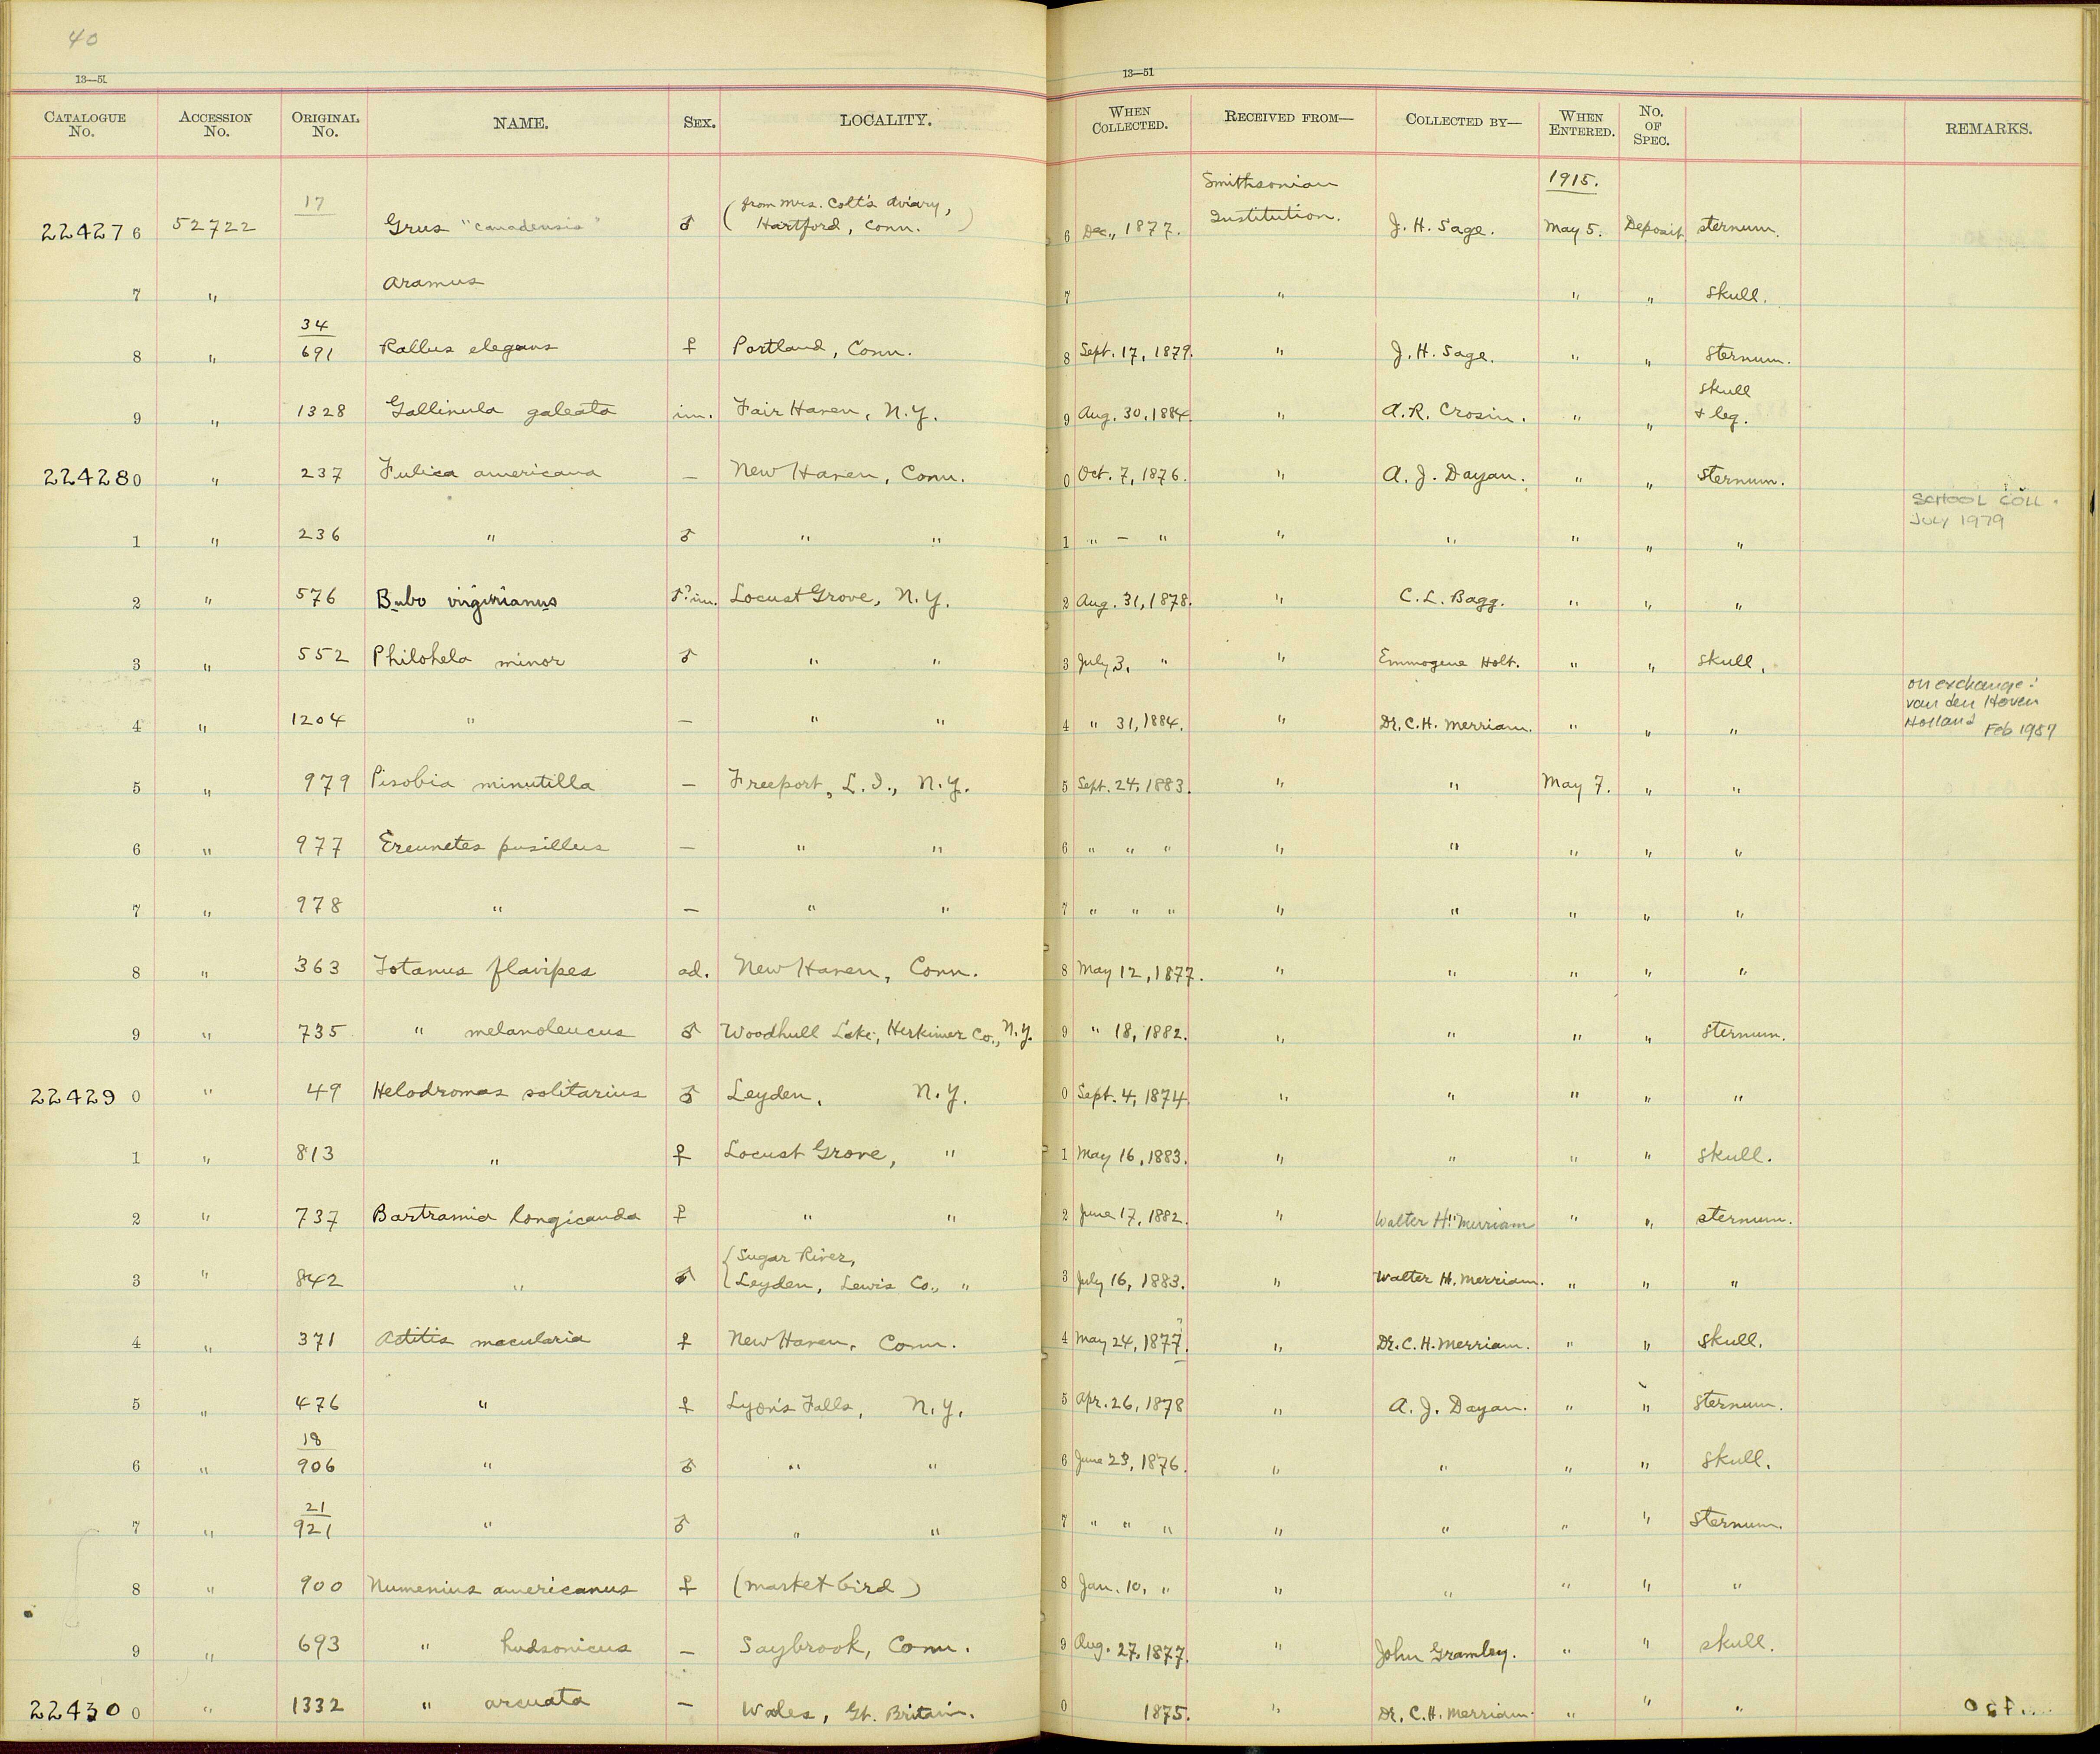 40
13—51
13—51
CATALOGUE No. ACCESSION No. ORIGINAL No. NAME. SEX. LOCALITY. WHEN COLLECTED. RECEIVED FROM— COLLECTED BY— WHEN ENTERED. NO. OF SPEC. REMARKS.
224276 52722 17 Grus "canadensis" ♂ (from Mrs. Colt's Aviary, Hartford, Conn.) 6 Dec., 1877. Smithsonian Institution. J. H. Sage. 1915. May 5. Deposit sternum.
7 " Aramus 7 " " " skull.
8 " 34 691 Rallus elegans ♀ Portland, Conn. 8 Sept. 17, 1879. " J. H. Sage. " " sternum.
9 " 1328 Gallinula galeata im. Fair Haven, N.Y. 9 Aug. 30, 1884. " A. R. Crosin. " " skull & leg.
224280 " 237 Fulica americana — New Haven, Conn. 0 Oct. 7, 1876. " A. J. Dayan. " " sternum.
1 " 236 " ♂ " " 1 " — " " " " " " SCHOOL COLL. JULY 1979
2 " 576 Bubo virginianus ♂? im. Locust Grove, N.Y. 2 Aug. 31, 1878. " C. L. Bagg. " " "
3 " 552 Philohela minor ♂ " " 3 July 3, " " Emmogene Holt. " " skull.
4 " 1204 " — " " 4 " 31, 1884. " Dr. C. H. Merriam. " " " on exchange: van den Hoven Holland Feb 1987
5 " 979 Pisobia minutilla — Freeport, L. I., N.Y. 5 Sept. 24, 1883. " " May 7. " "
6 " 977 Ereunetes pusillus — " " 6 " " " " " " " "
7 " 978 " — " " 7 " " " " " " " "
8 " 363 Totanus flavipes ad. New Haven, Conn. 8 May 12, 1877. " " " " "
9 " 735 " melanoleucus ♂ Woodhull Lake, Herkimer Co., N.Y. 9 " 18, 1882. " " " " sternum.
224290 " 49 Helodromas solitarius ♂ Leyden, N.Y. 0 Sept. 4, 1874. " " " " "
1 " 813 " ♀ Locust Grove, " 1 May 16, 1883. " " " " skull.
2 " 737 Bartramia longicauda ♀ " " 2 June 17, 1882. " Walter H. Merriam " " sternum.
3 " 842 " ♂ {Sugar River, Leyden, Lewis Co., " 3 July 16, 1883. " Walter H. Merriam. " " "
4 " 371 Actitis macularia ♀ New Haven, Conn. 4 May 24, 1877.? " Dr. C. H. Merriam. " " skull.
5 " 476 " ♀ Lyon's Falls, N.Y. 5 Apr. 26, 1878 " A. J. Dayan. " " sternum.
6 " 18 906 " ♂ " " 6 June 23, 1876. " " " " skull.
7 " 21 921 " ♂ " " 7 " " " " " " " sternum.
8 " 900 Numenius americanus ♀ (market bird) 8 Jan. 10, " " " " " "
9 " 693 " hudsonicus — Saybrook, Conn. 9 Aug. 27, 1877. " John Gramley. " " skull.
224300 " 1332 " arcuata — Wales, Gt. Britain. 0 1875. " Dr. C. H. Merriam. " " "